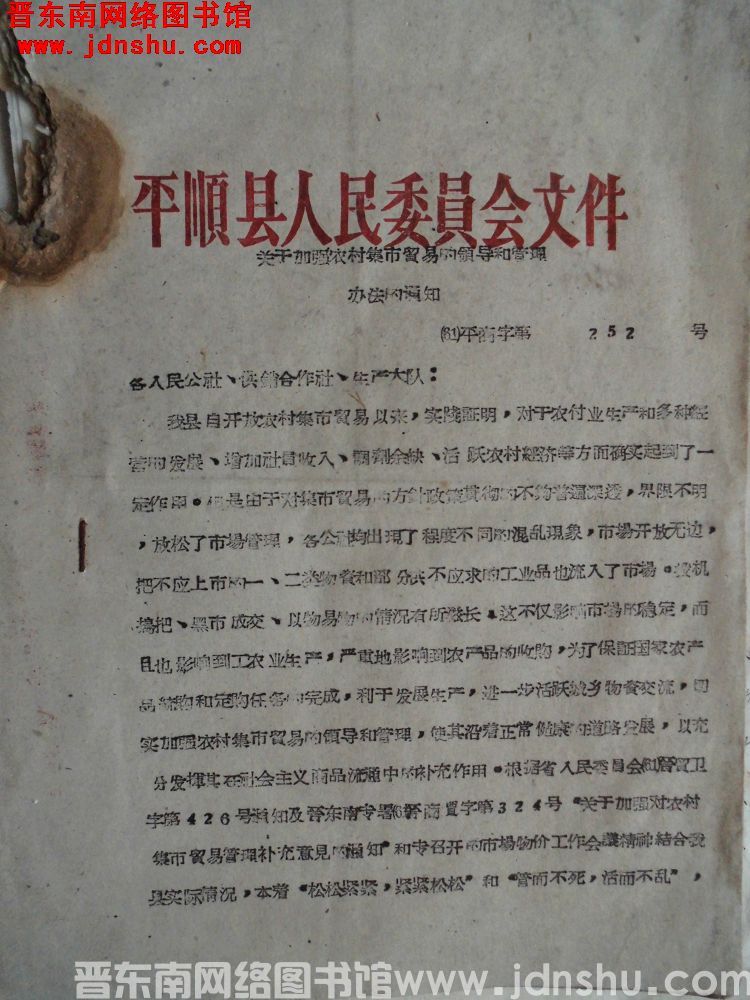 晋东南网络图书馆
www.jdnshu.com
平順县人民委員会文件
关于加强农村集市贸易的領导和管理
办法的通知
(61)平商字第 252 号
各人民公社、供銷合作社、生产大队：
我县自开放农村集市貿易以来，实践証明，对于农付业生产和多种经
营的发展、增加社員收入、調剂余缺、活跃农村經济等方面确实起到了一
定作用。但是由于对集市貿易的方針政策貫彻的不够普遍深透，界限不明
，放松了市場管理，各公社均出現了程度不同的混乱現象，市場开放无边，
把不应上市的一、二类物資和部分供不应求的工业品也流入了市場。投机
搗把、黑市成交、以物易物的情况有所滋长。这不仅影响市場的稳定，而
且也影响到工农业生产，严重地影响到农产品的收购，为了保証国家农产
品統购和定购任务的完成，利于发展生产，进一步活跃城乡物資交流，切
实加强农村集市貿易的領导和管理，使其沿着正常健康的道路发展，以充
分发揮其在社会主义商品流通中的补充作用。根据省人民委員会(61)晋貿卫
字第426号通知及晋东南专署(61)晋商貿字第324号“关于加强对农村
集市貿易管理补充意見的通知”和专召开的市場物价工作会議精神結合我
县实际情况，本着“松松紧紧，紧紧松松”和“管而不死，活而不乱”，
晋东南网络图书馆www.jdnshu.com